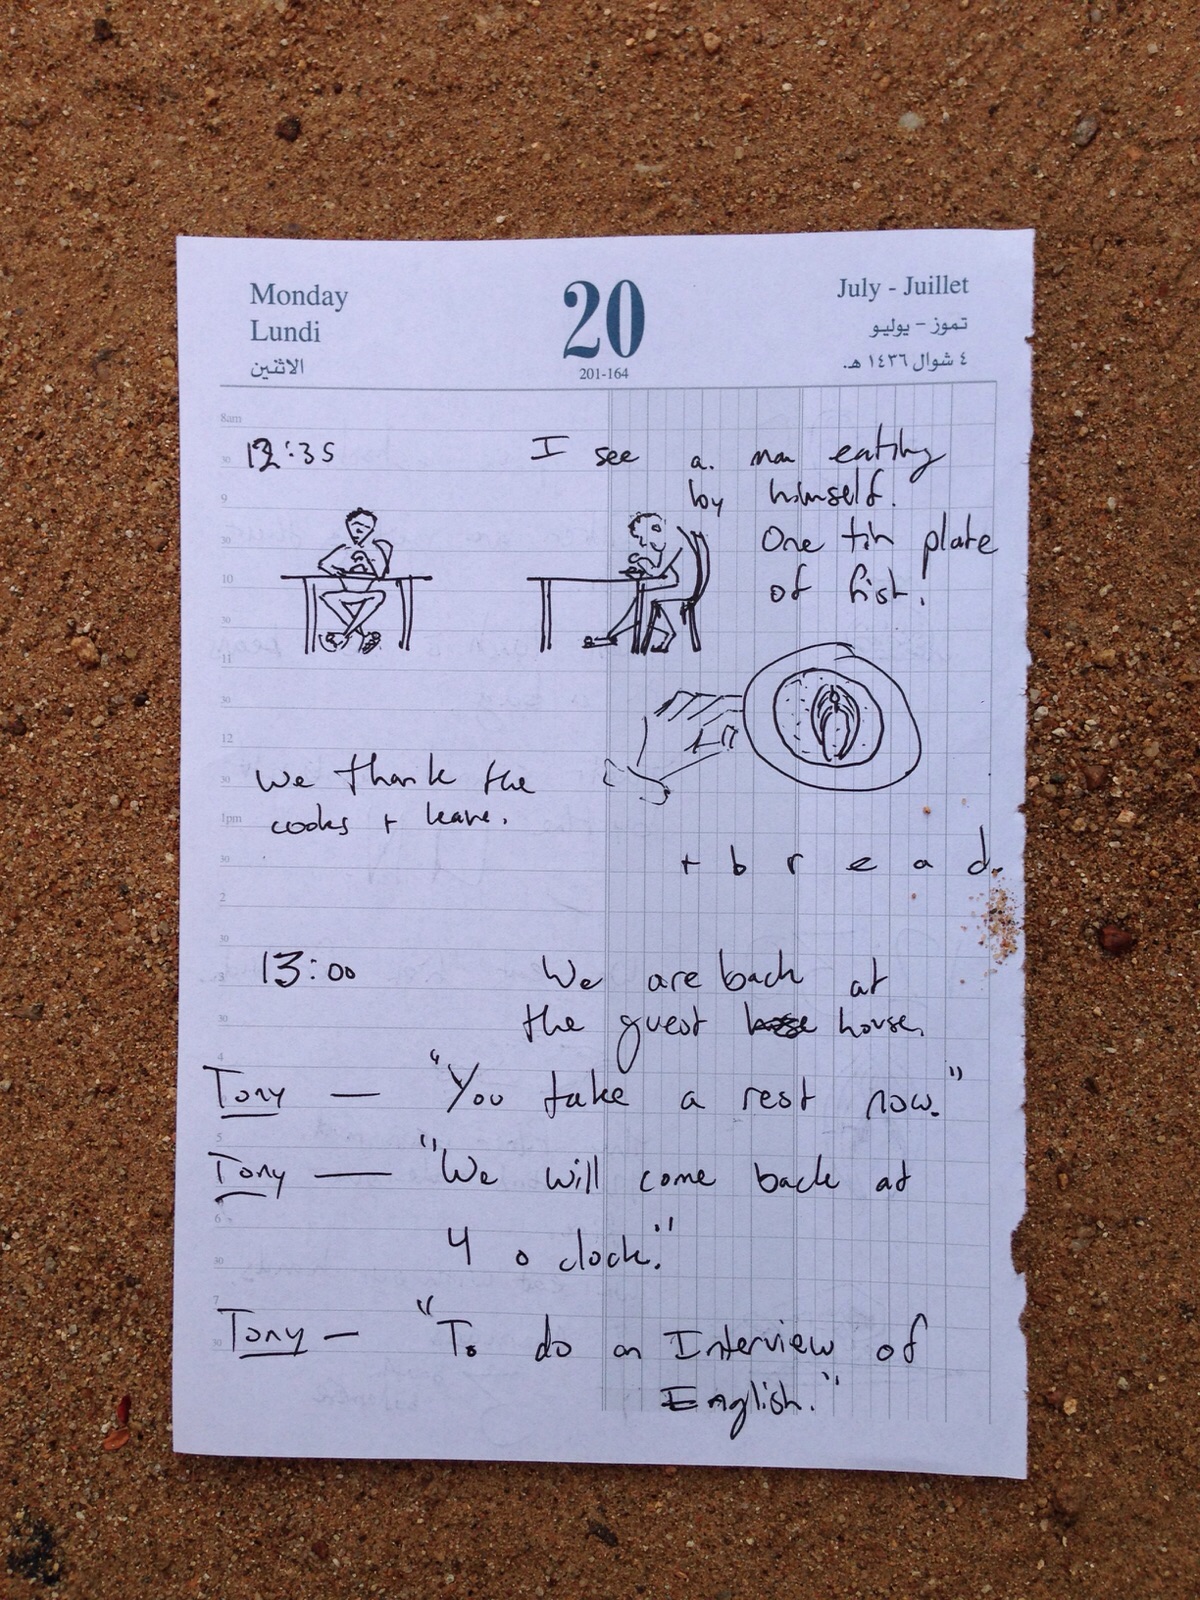 Monday
Lundi
الاثنين
20
201-164
July - Juillet
تموز - يوليو
٤ شوال ١٤٣٦ هـ.
8am
30
9
30
10
30
11
30
12
30
1pm
30
2
30
3
30
4
5
6
30
7
30
12:35
I see a. man eating
by himself.
One tin plate
of fish!
We thank the
cooks + leave.
+ b r e a d.
13:00
We are back at
the guest house.
Tony — "You take a rest now."
Tony — "We will come back at
4 o clock."
Tony — "To do an Interview of
English."